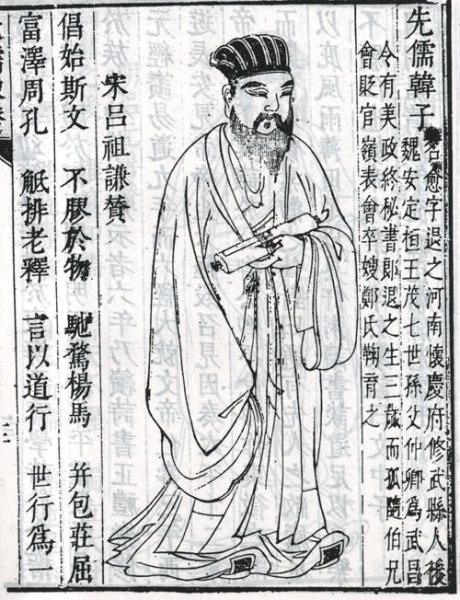 先儒韓子
名愈字退之河南懷慶府修武縣人後
魏安定桓王茂七世孫父仲卿爲武昌
令有美政終秘書郎退之生三歲而孤隨伯兄
會貶官嶺表會卒嫂鄭氏鞠育之
宋呂祖謙贊
倡始斯文 不膠於物 馳騖楊馬 并包莊屈
富澤周孔 觝排老釋 言以道行 世行爲一